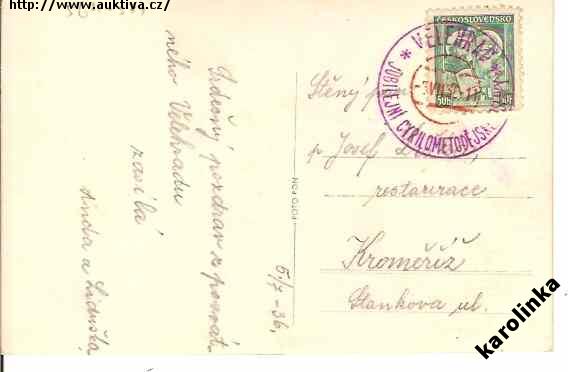 http://www.auktiva.cz/
Srdečný pozdrav z posvát-
ného Velehradu
zasílá
Anda a Liduška
5/7-36.
FOTO FON
ČESKOSLOVENSKO
50h
VELEHRAD
JUBILEJNÍ CYRILOMETODĚJSKÉ
Ctěný pan
p. Josef
restaurace
Kroměříž
Stankova ul.
karolinka